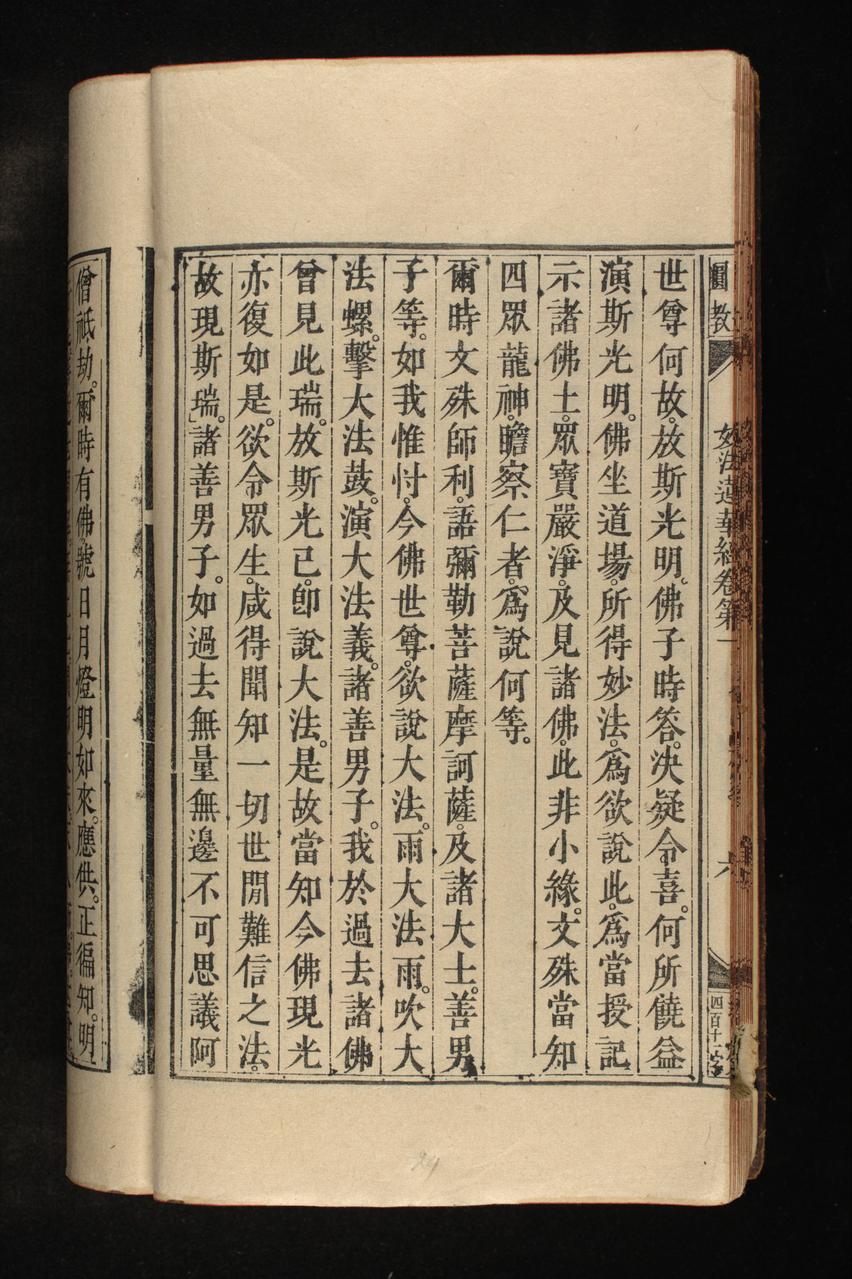 圓教
妙法蓮華經卷第一
六
世尊何故放斯光明。佛子時答。決疑令喜。何所饒益
演斯光明。佛坐道場。所得妙法。爲欲說此。爲當授記
示諸佛土。眾寶嚴淨。及見諸佛。此非小緣。文殊當知
四眾龍神。瞻察仁者。爲說何等。
爾時文殊師利。語彌勒菩薩摩訶薩。及諸大士。善男
子等。如我惟忖。今佛世尊。欲說大法。雨大法雨。吹大
法螺。擊大法鼓。演大法義。諸善男子。我於過去諸佛
曾見此瑞。放斯光已。卽說大法。是故當知今佛現光
亦復如是。欲令眾生。咸得聞知一切世閒難信之法。
故現斯瑞。諸善男子。如過去無量無邊不可思議阿
僧祇劫。爾時有佛。號日月燈明如來。應供。正徧知。明